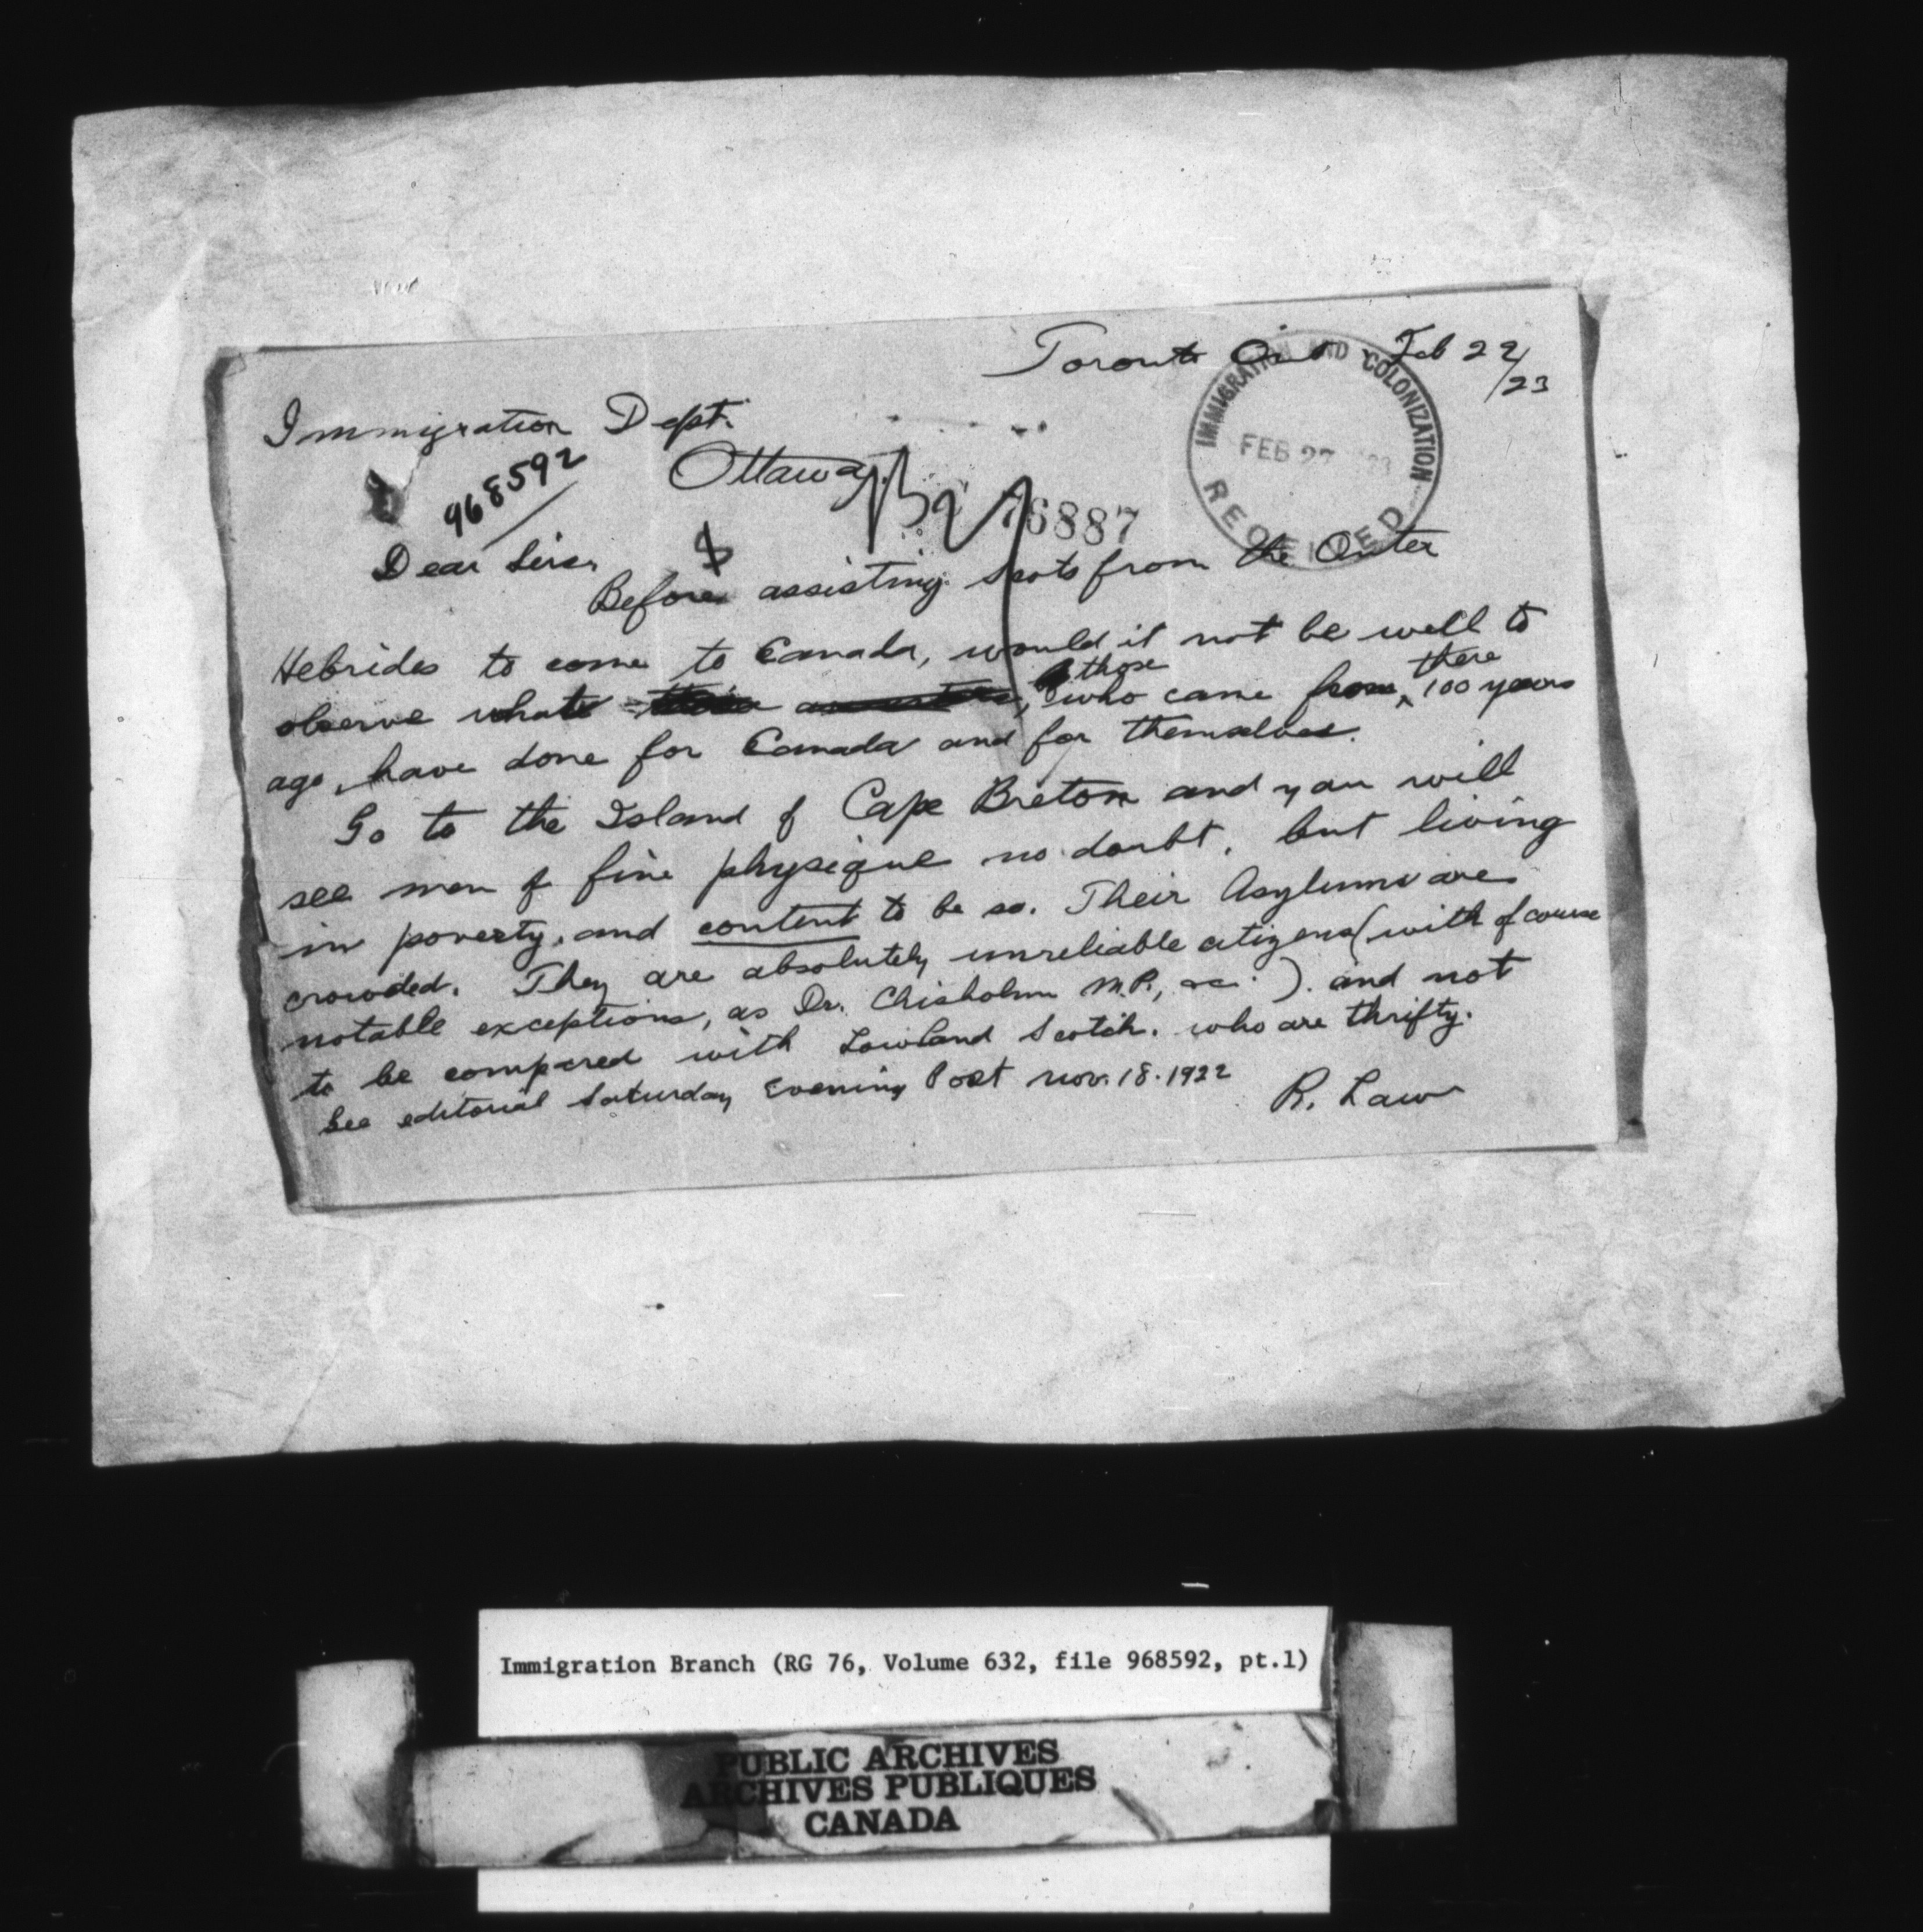 Toronto Ont Feb 22/23
IMMIGRATION AND COLONIZATION
FEB 27 23
RECEIVED
Immigration Dept.
Ottawa.
968592
76887
Dear Sirs,
Before assisting Scots from the Outer
Hebrides to come to Canada, would it not be well to
observe what those who came from there 100 years
ago, have done for Canada and for themselves.
Go to the Island of Cape Breton and you will
see men of fine physique no doubt, but living
in poverty, and content to be so. Their Asylums are
crowded. They are absolutely unreliable citizens (with of course
notable exceptions, as Dr. Chisholm M.P., &c.). and not
to be compared with Lowland Scotch. who are thrifty.
See editorial Saturday Evening Post Nov. 18. 1922
R. Law
Immigration Branch (RG 76, Volume 632, file 968592, pt.1)
PUBLIC ARCHIVES
ARCHIVES PUBLIQUES
CANADA